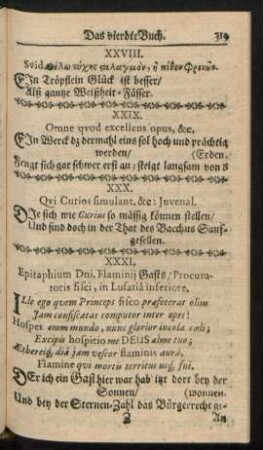 Das vierdte Buch. 319
XXVIII.
Ein Tröpflein Glück ist besser/
Alß gantze Weißheit-Fässer.
XXIX.
Omne qvod excellens opus, &c.
Ein Werck dz dermahl eins sol hoch und prächtig
werden/ (Erden.
Fenge sich gar schwer erst an; steigt langsam von d
XXX.
Qvi Curios simulant, &c: Juvenal.
Die sich wie Curius so mässig können stellen/
Und sind doch in der That des Bacchus Sauf-
gesellen.
XXXI.
Epitaphium Dni. Flaminij Gasts/ Procura-
toris fisci, in Lusatiâ inferiore.
Ille ego qvem Princeps fisco præfecerat olim
Jam confiscatas computor inter opes!
Hospes eram mundo, nunc glorior incola cœli;
Excipis hospitio me DEUS alme tuo;
Æthereiq́; diâ jam vescor flaminis aurâ,
Flamine qvi mortu territus usq́;
Der ich ein Gast hier war hab' itzt dort bey der
Sonnen/ (wonnen.
Und bey der Sternen-Zahl das Bürgerrecht ge-
An